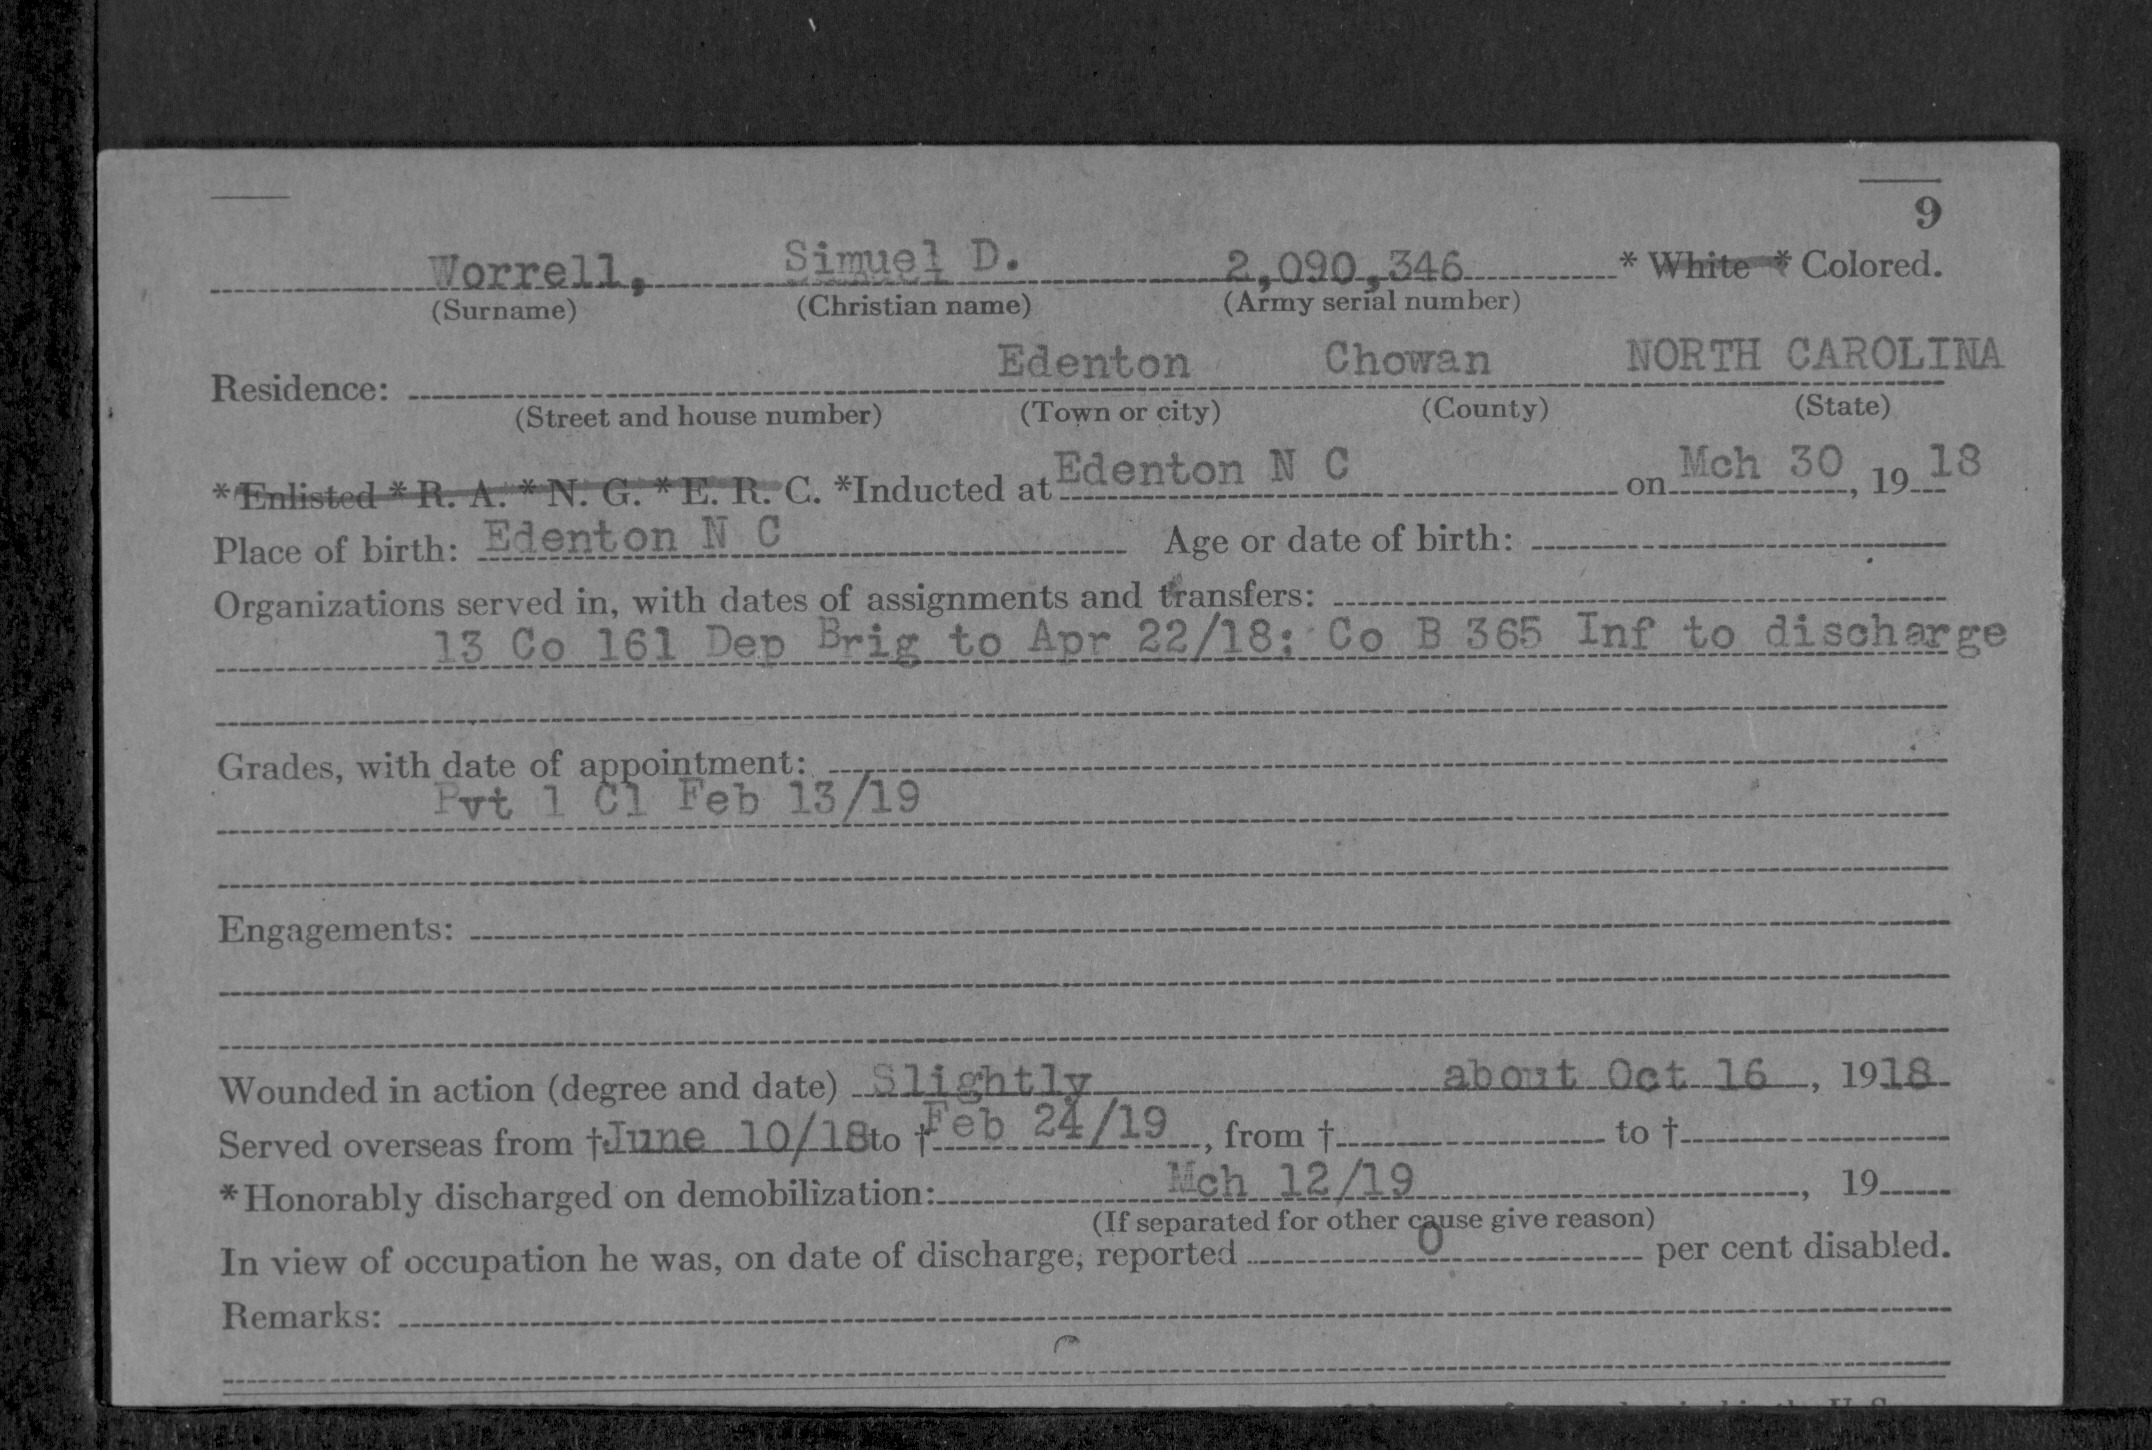 9
Worrell, Simuel D. 2,090,346 * White * Colored.
(Surname) (Christian name) (Army serial number)
Edenton Chowan NORTH CAROLINA
Residence:
(Street and house number) (Town or city) (County) (State)
*Enlisted * R. A. * N. G. * E. R. C. *Inducted at Edenton N C on Mch 30, 1918
Place of birth: Edenton N C Age or date of birth:
Organizations served in, with dates of assignments and transfers:
13 Co 161 Dep Brig to Apr 22/18; Co B 365 Inf to discharge
Grades, with date of appointment:
Pvt 1 Cl Feb 13/19
Engagements:
Wounded in action (degree and date) Slightly about Oct 16, 1918
Served overseas from †June 10/18 to †Feb 24/19, from † to †
*Honorably discharged on demobilization: Mch 12/19, 19
(If separated for other cause give reason)
In view of occupation he was, on date of discharge, reported 0 per cent disabled.
Remarks: